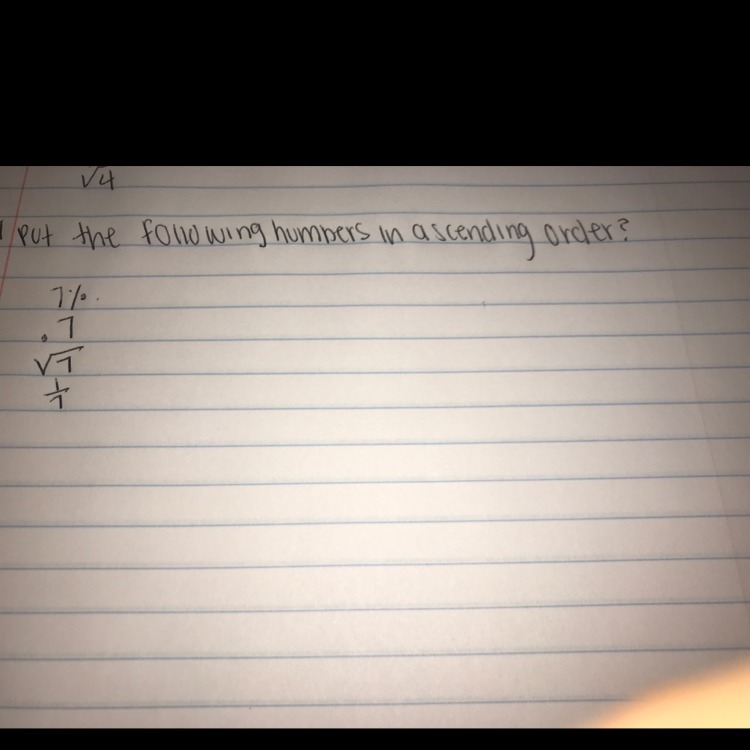 √4
1 Put the following numbers in ascending order?
7%.
.7
√7
1/7